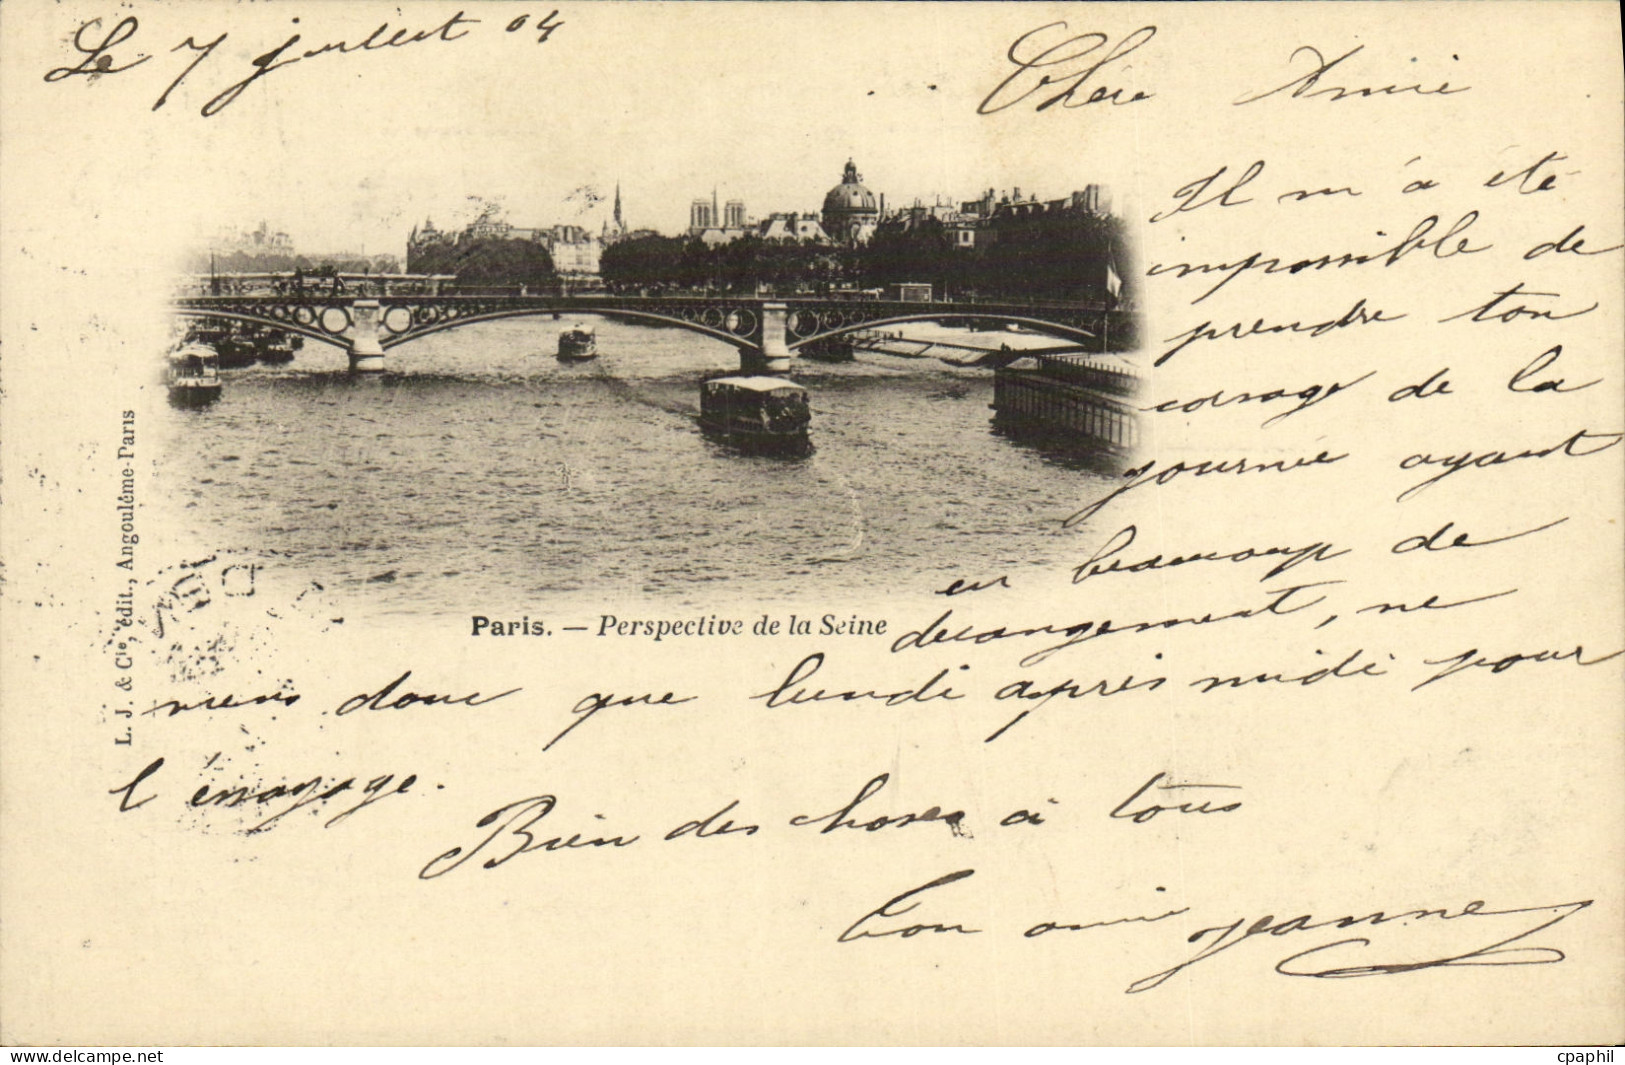 Le 7 juillet 04
Chère Amie
Il m'a été
impossible de
prendre ton
corsage de la
journée ayant
eu beaucoup de
derangement, ne
viens donc que lundi après midi pour
l'éssayage.
Bien des choses à tous
Ton amie Jeanne
Paris. — Perspective de la Seine
L. J. & Cie, édit., Angoulême-Paris
www.delcampe.net
cpaphil